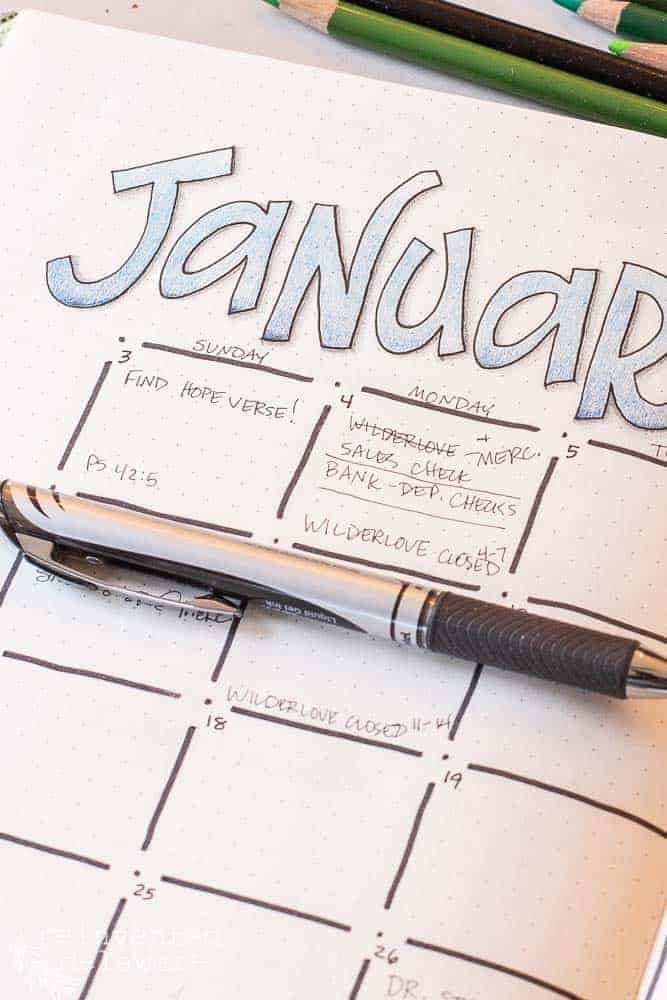 JANUAR
SUNDAY
MONDAY
3
FIND HOPE VERSE!
PS 42:5
4
WILDERLOVE - MERC.
SALES CHECK
BANK - DEP. CHECKS
WILDERLOVE CLOSED 4-7
5
Liquid Gel Ink
WILDERLOVE CLOSED 11-14
18
19
25
26
DR.
reinvented
delaware